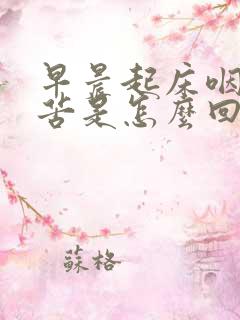 早晨起床咽
苦是怎麼回
蘇格